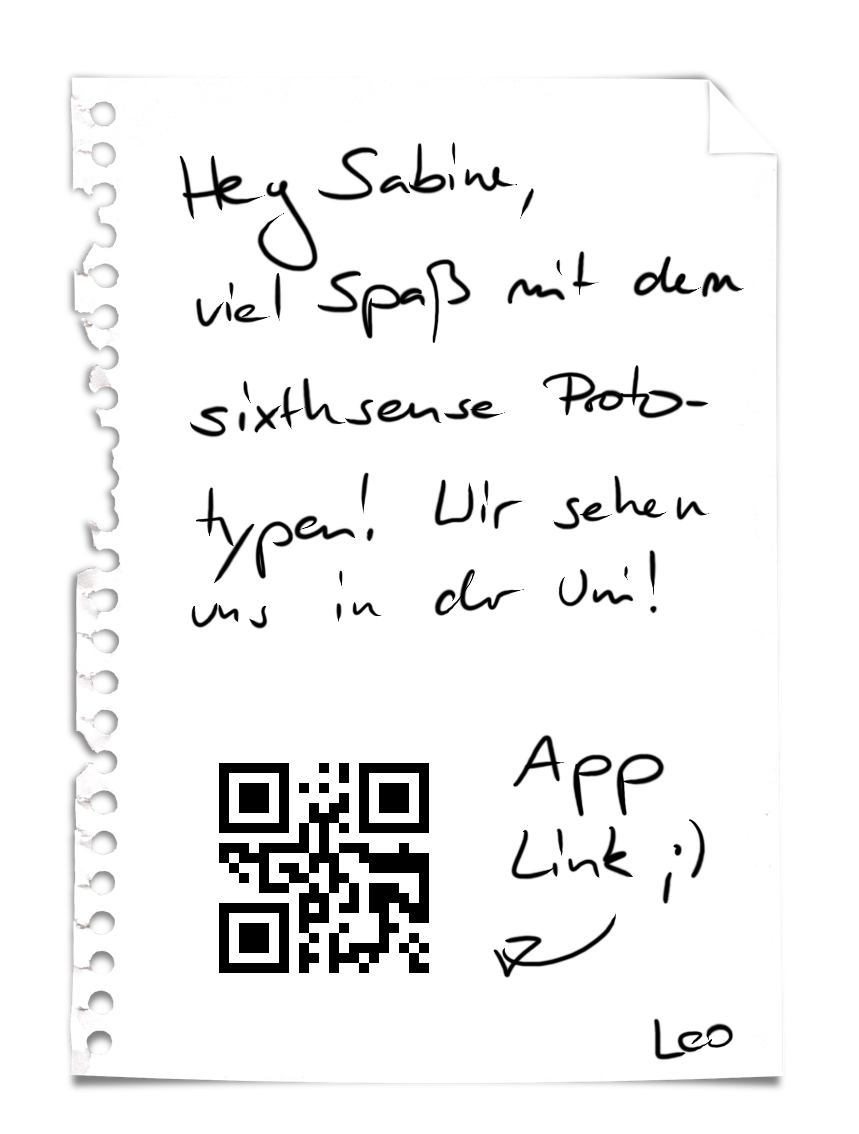 Hey Sabine,
viel Spaß mit dem
sixthsense Proto-
typen! Wir sehen
uns in der Uni!
App
Link ;)
Leo